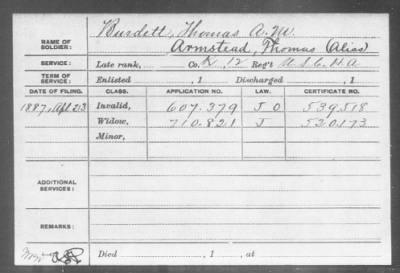 NAME OF SOLDIER: Burdett, Thomas A. M.
Armstead, Thomas (Alias)
SERVICE: Late rank, Co. K, 12 Reg't U.S.C.H.A
TERM OF SERVICE: Enlisted , 1 Discharged , 1
DATE OF FILING. CLASS. APPLICATION NO. LAW. CERTIFICATE NO.
1887, Apl 23 Invalid, 607.379 J O 539.518
Widow, 710.821 J 520.173
Minor,
ADDITIONAL SERVICES:
REMARKS:
Died , 1 , at